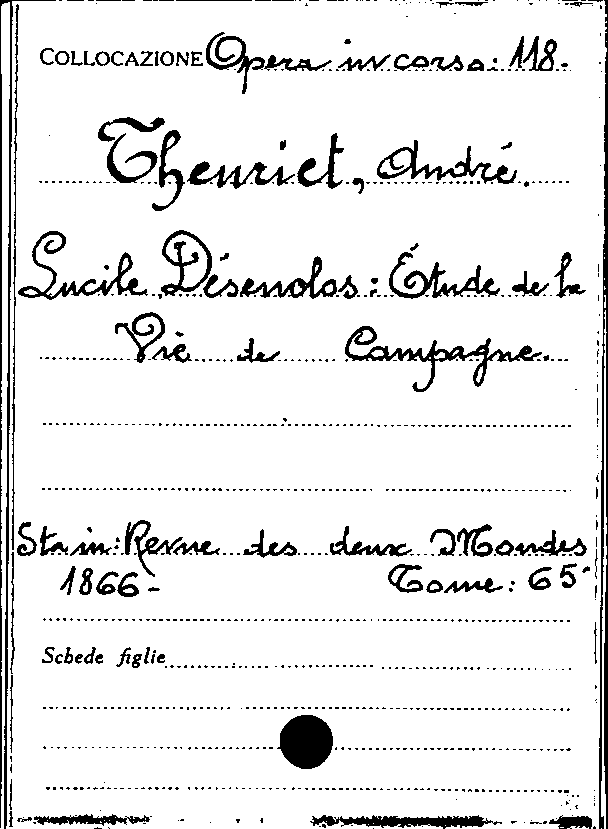 COLLOCAZIONE Opera in corso: 118.
Theuriet, André.
Lucile Désenolos: Étude de la
Vie de Campagne.
Sta in: Revue des deux Mondes
1866- Tome: 65°
Schede figlie